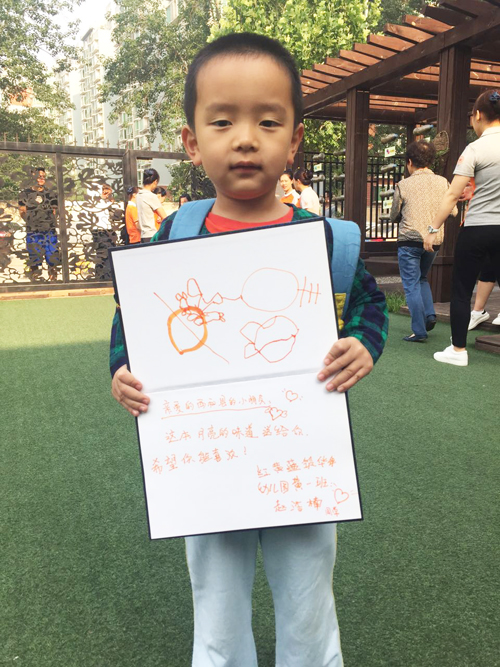 亲爱的 的小朋友：
这本月亮的味道送给你，
希望你能喜欢！
红黄蓝筑华年
幼儿园黄一班